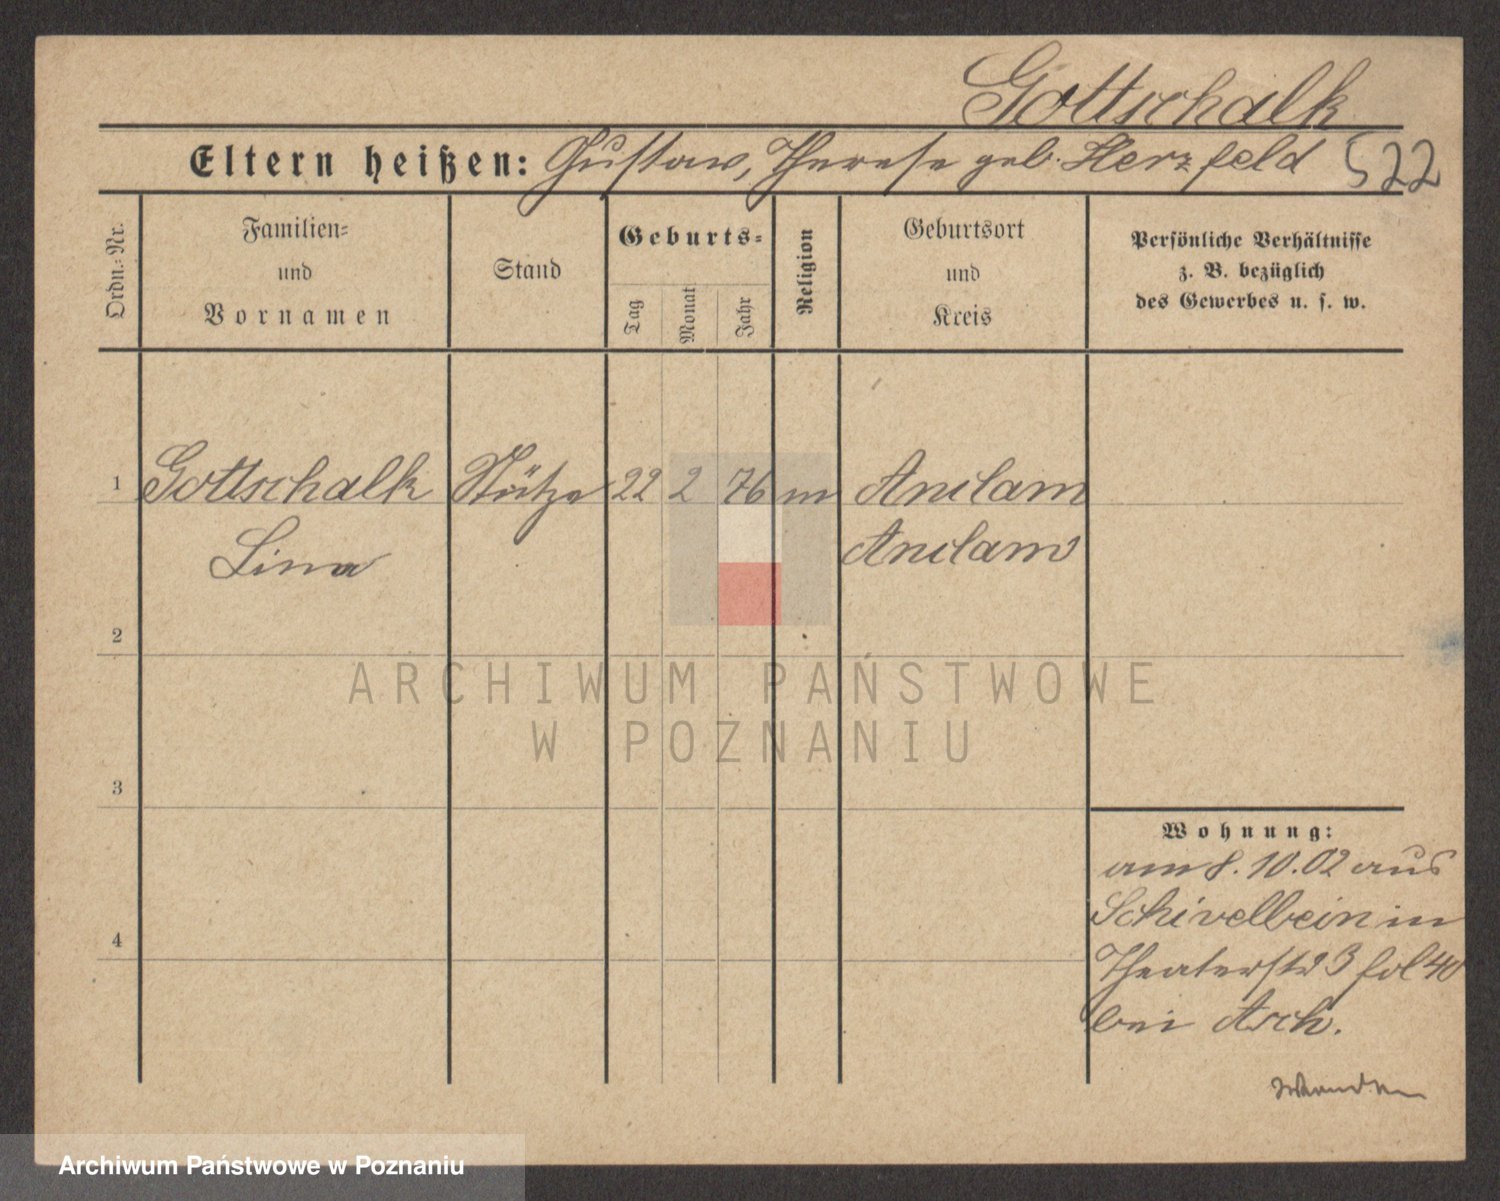 Gottschalk
Eltern heißen: Gustav, Therese geb. Herzfeld 522
Ordn.-Nr.
Familien-
und
Vornamen
Stand
Geburts-
Tag
Monat
Jahr
Religion
Geburtsort
und
Kreis
Persönliche Verhältnisse
z. B. bezüglich
des Gewerbes u. s. w.
1 Gottschalk Stütze 22 2 76 m Anclam
Lina Anclam
2
ARCHIWUM PAŃSTWOWE
W POZNANIU
3
Wohnung:
am 8. 10. 02 aus
Schivelbein in
Theaterstr 3 fol 40
4
bei Asch.
Archiwum Państwowe w Poznaniu